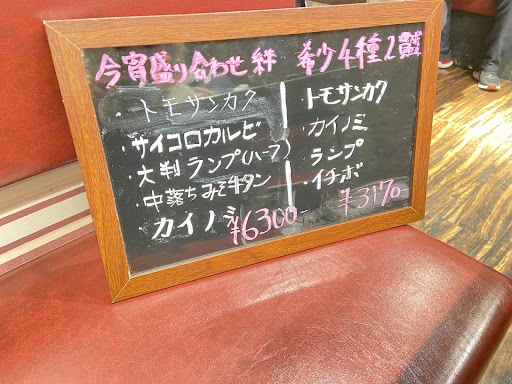 今宵盛り合わせ 絆
・トモサンカク
・サイコロカルビ
・大判ランプ(ハーフ)
・中落ちみそ牛タン
・カイノミ
¥6300-
希少4種2貫
・トモサンカク
・カイノミ
・ランプ
・イチボ
¥3170-